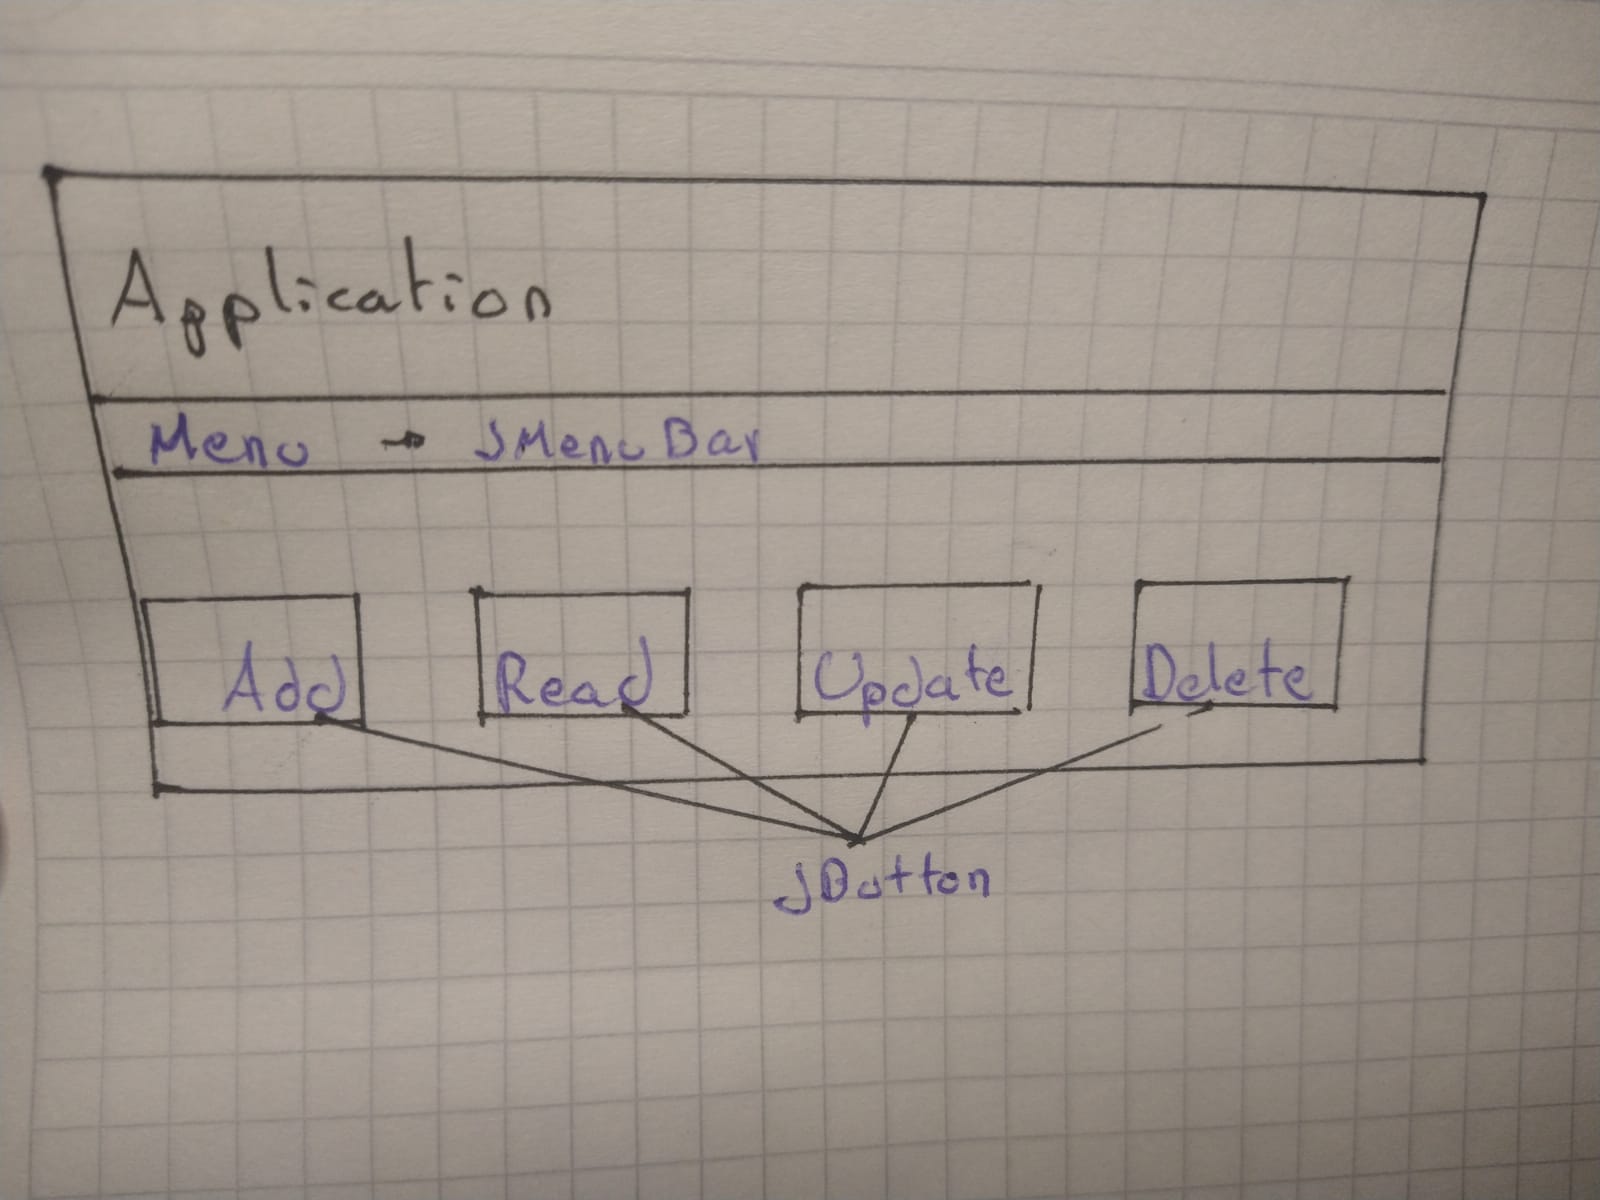 Application
Menu → JMenuBar
Add Read Update Delete
JButton